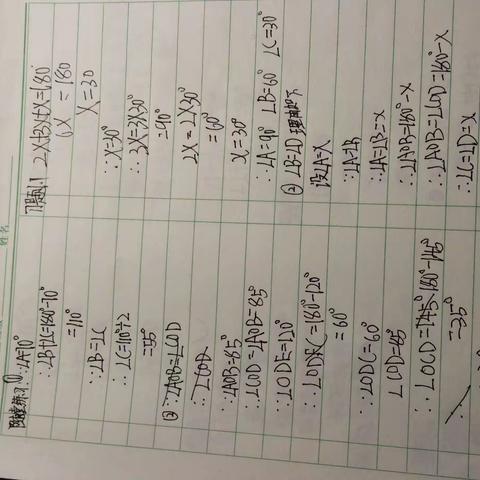 ∵∠A=70°
∴∠B+∠C=180°-70°
=110°
∵∠B=∠C
∴∠C=110°÷2
=55°
② ∵∠AOB=∠COD
∴∠COD
∵∠AOB=85°
∴∠COD=∠AOB=85°
∵∠ODE=120°
∴∠ODRC=180°-120°
=60°
∵∠ODC=60°
∠COD=85°
∴∠OCD=145°180°-145°
=35°
习题1.1 2X+3X+X=180
6X=180
X=30
∵X=30°
∴3X=3X30°
=90°
2X=2X30°
=60°
X=30°
∴∠A=90° ∠B=60° ∠C=30°
② ∠B=∠D 理由如下
设∠A=X
∵∠A=∠B
∴∠A=∠B=X
∴∠AOB=180°-X
∴∠AOB=∠COD=180°-X
∴∠C=∠D=X
姓名